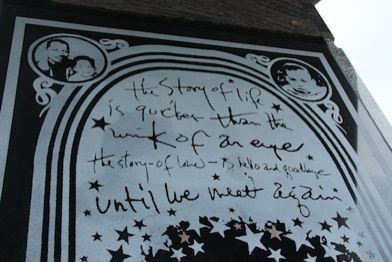 the story of life
is quicker than the
wink of an eye
the story of love - is hello and goodbye
until we meet again